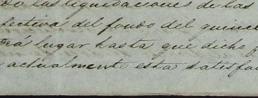 do las liquidaciones de las
fectiva del fondo del quince
rá lugar hasta que dicho f
actualmente esta satisfa